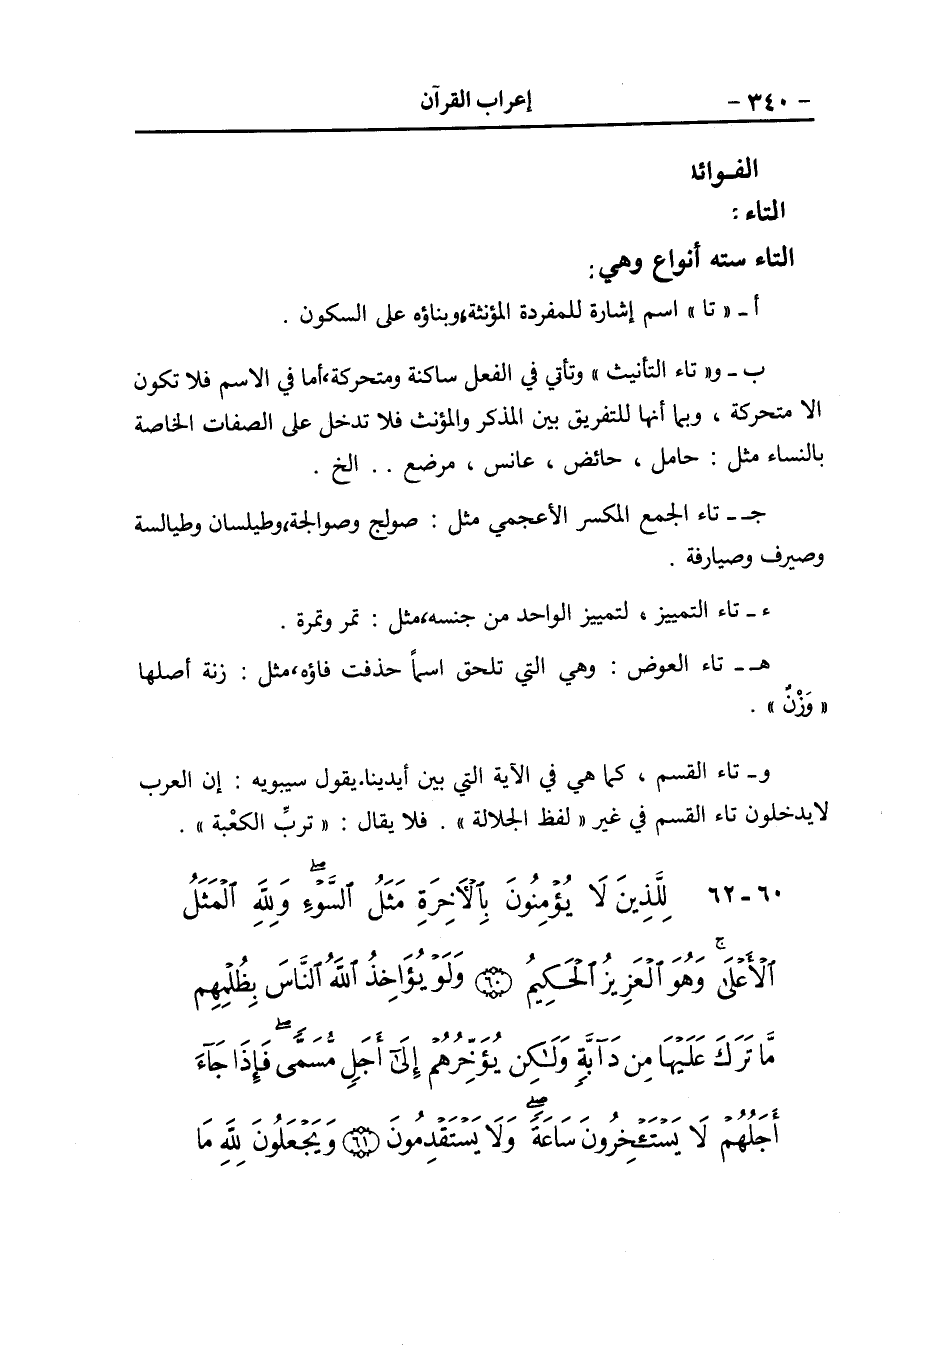 - ٣٤٠ - إعراب القرآن
الفـوائد
التاء :
التاء سته أنواع وهي :
أ ـ « تا » اسم إشارة للمفردة المؤنثة،وبناؤه على السكون .
ب ـ و« تاء التأنيث » وتأتي في الفعل ساكنة ومتحركة،أما في الاسم فلا تكون
الا متحركة ، وبما أنها للتفريق بين المذكر والمؤنث فلا تدخل على الصفات الخاصة
بالنساء مثل : حامل ، حائض ، عانس ، مرضع . . الخ .
جـ ـ تاء الجمع المكسر الأعجمي مثل : صولج وصوالجة،وطيلسان وطيالسة
وصيرف وصيارفة .
ء ـ تاء التمييز ، لتمييز الواحد من جنسه،مثل : تمر وتمرة .
هـ ـ تاء العوض : وهي التي تلحق اسماً حذفت فاؤه،مثل : زنة أصلها
« وَزْنٌ » .
و ـ تاء القسم ، كما هي في الآية التي بين أيدينا.يقول سيبويه : إن العرب
لايدخلون تاء القسم في غير « لفظ الجلالة » . فلا يقال : « تربِّ الكعْبة » .
٦٠ ـ ٦٢ لِلَّذِينَ لَا يُؤْمِنُونَ بِٱلْأَخِرَةِ مَثَلُ ٱلسَّوْءِۖ وَلِلَّهِ ٱلْمَثَلُ
ٱلْأَعْلَىٰۚ وَهُوَ ٱلْعَزِيزُ ٱلْحَكِيمُ ﴿٦٠﴾ وَلَوْ يُؤَاخِذُ ٱللَّهُ ٱلنَّاسَ بِظُلْمِهِم
مَّا تَرَكَ عَلَيْهَا مِن دَآبَّةٍ وَلَٰكِن يُؤَخِّرُهُمْ إِلَىٰٓ أَجَلٍ مُّسَمًّىۖ فَإِذَا جَآءَ
أَجَلُهُمْ لَا يَسْتَـْٔخِرُونَ سَاعَةًۖ وَلَا يَسْتَقْدِمُونَ ﴿٦١﴾ وَيَجْعَلُونَ لِلَّهِ مَا